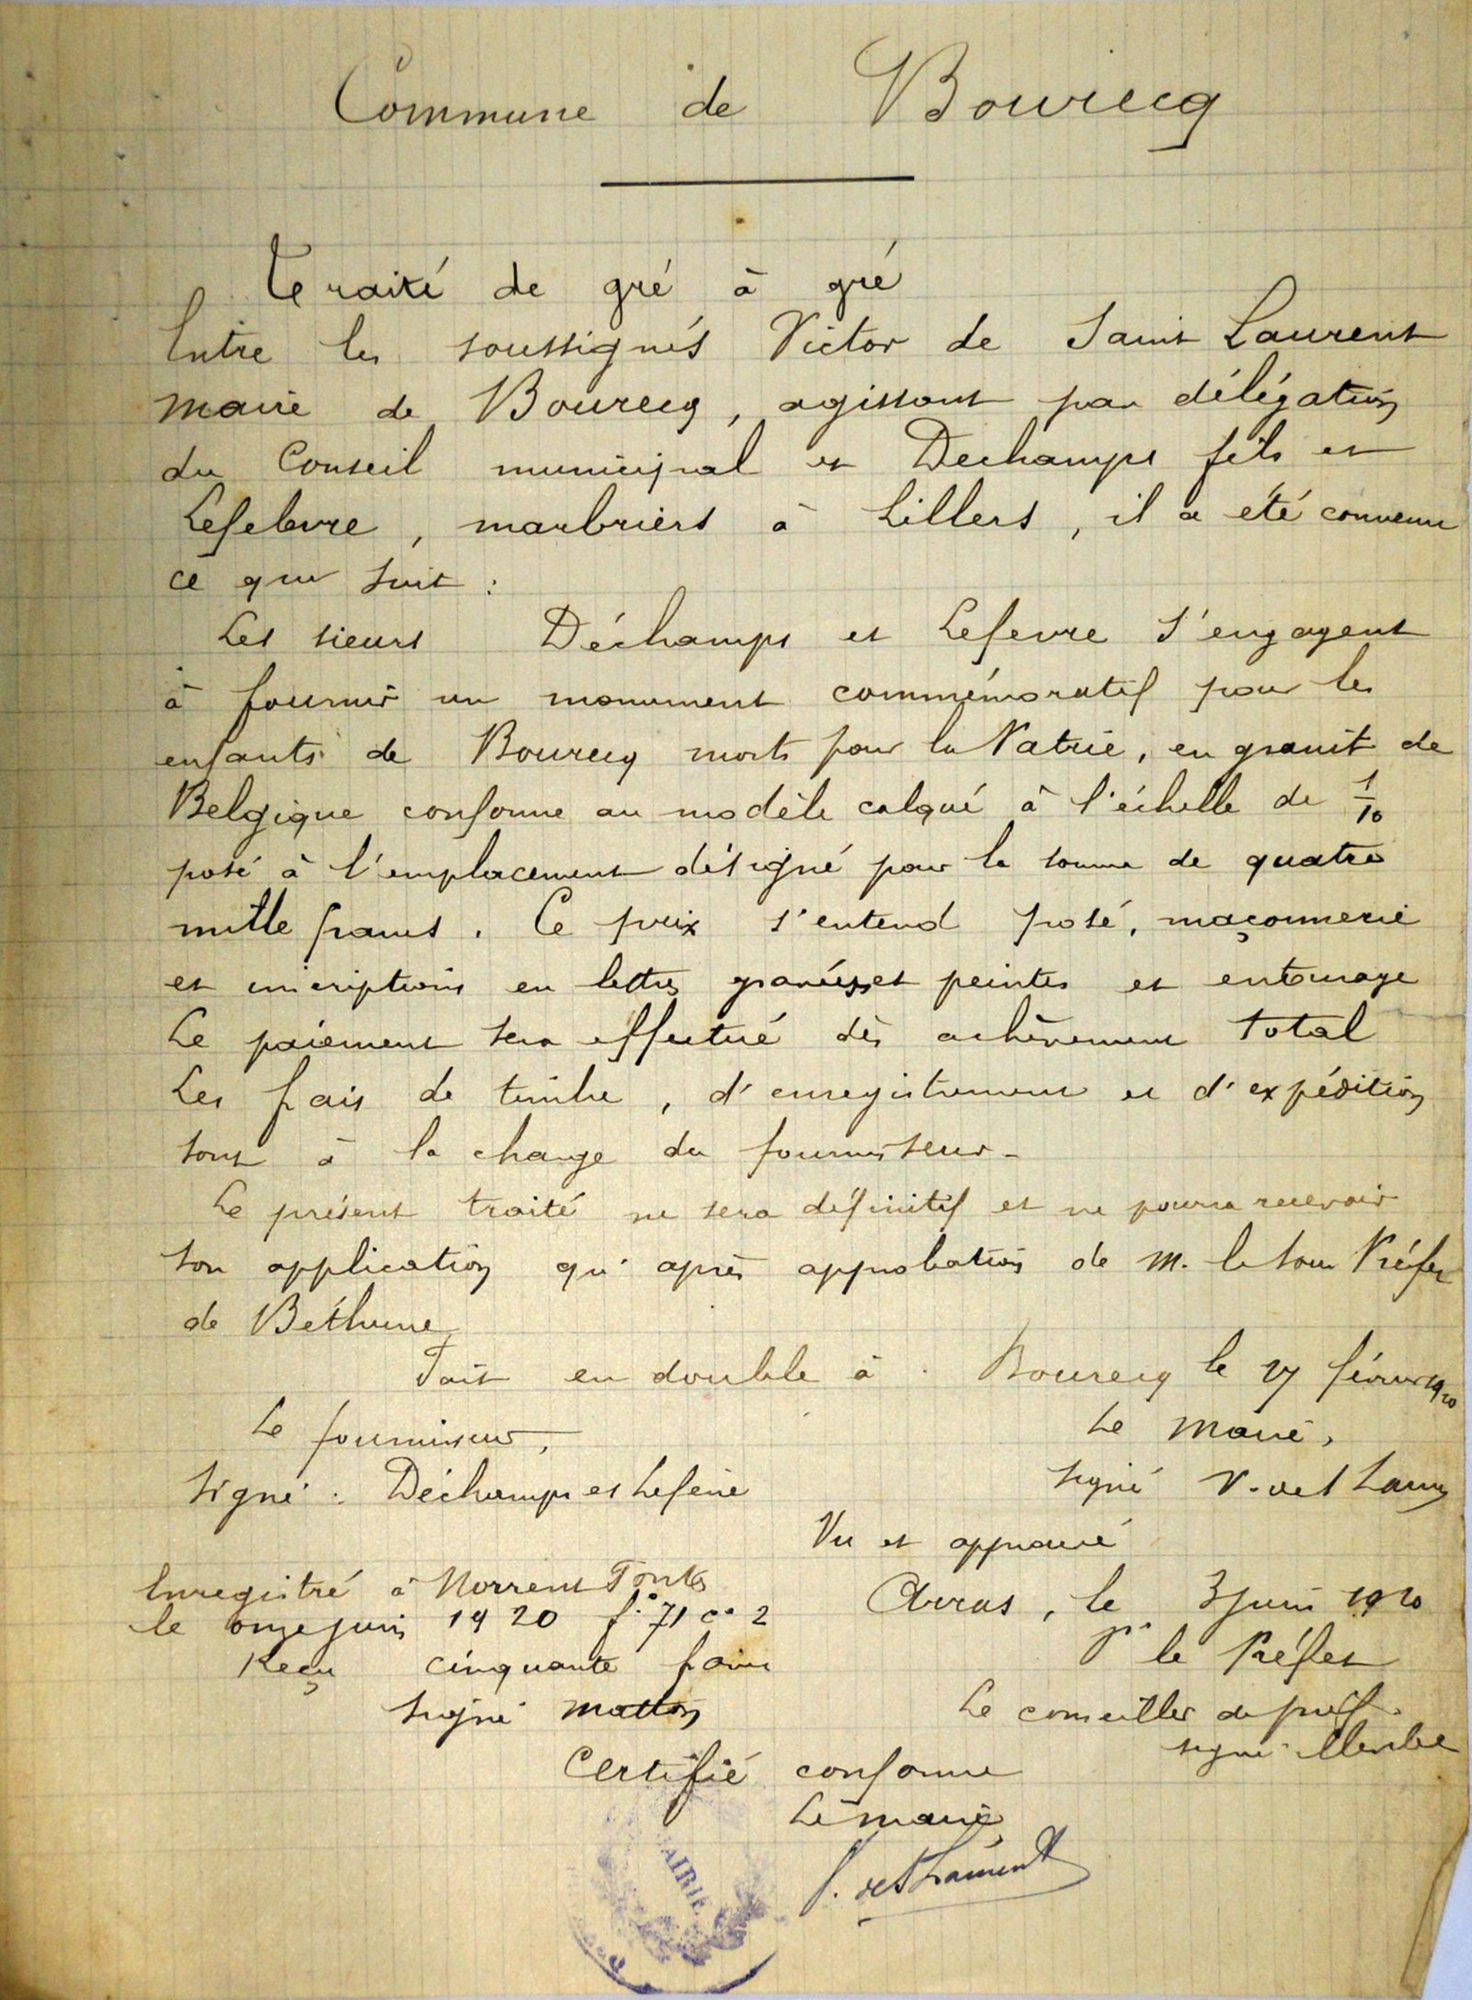 Commune de Bourecq
Traité de gré à gré
Entre les soussignés Victor de Saint Laurent
maire de Bourecq, agissant par délégation
du Conseil municipal et Dechamps fils et
Lefebvre, marbriers à Lillers, il a été convenu
ce qui suit :
Les sieurs Déchamps et Lefevre s'engagent
à fournir un monument commémoratif pour les
enfants de Bourecq morts pour la Patrie, en granit de
Belgique conforme au modèle calqué à l'échelle de 1/10
posé à l'emplacement désigné pour la somme de quatre
mille francs. Ce prix s'entend posé, maçonnerie
et inscriptions en lettres gravées et peintes et entourage
Le paiement sera effectué dès achèvement total
Les frais de timbre, d'enregistrement et d'expédition
sont à la charge du fournisseur -
Le présent traité ne sera définitif et ne pourra recevoir
son application qu'après approbation de M. le Sous Préfet
de Béthune
Fait en double à Bourecq le 27 février 1920
Le fournisseur, Le Maire,
Signé : Déchamps et Lefevre signé V. de St Laurent
Vu et approuvé
Enregistré à Norrent Fontes Arras, le 3 juin 1920
le onze juin 1920 f° 71 c° 2 Pr le Préfet
Reçu cinquante francs
Le conseiller de préf.
signé signé
Certifié conforme
Le maire
V. de St Laurent
MAIRIE